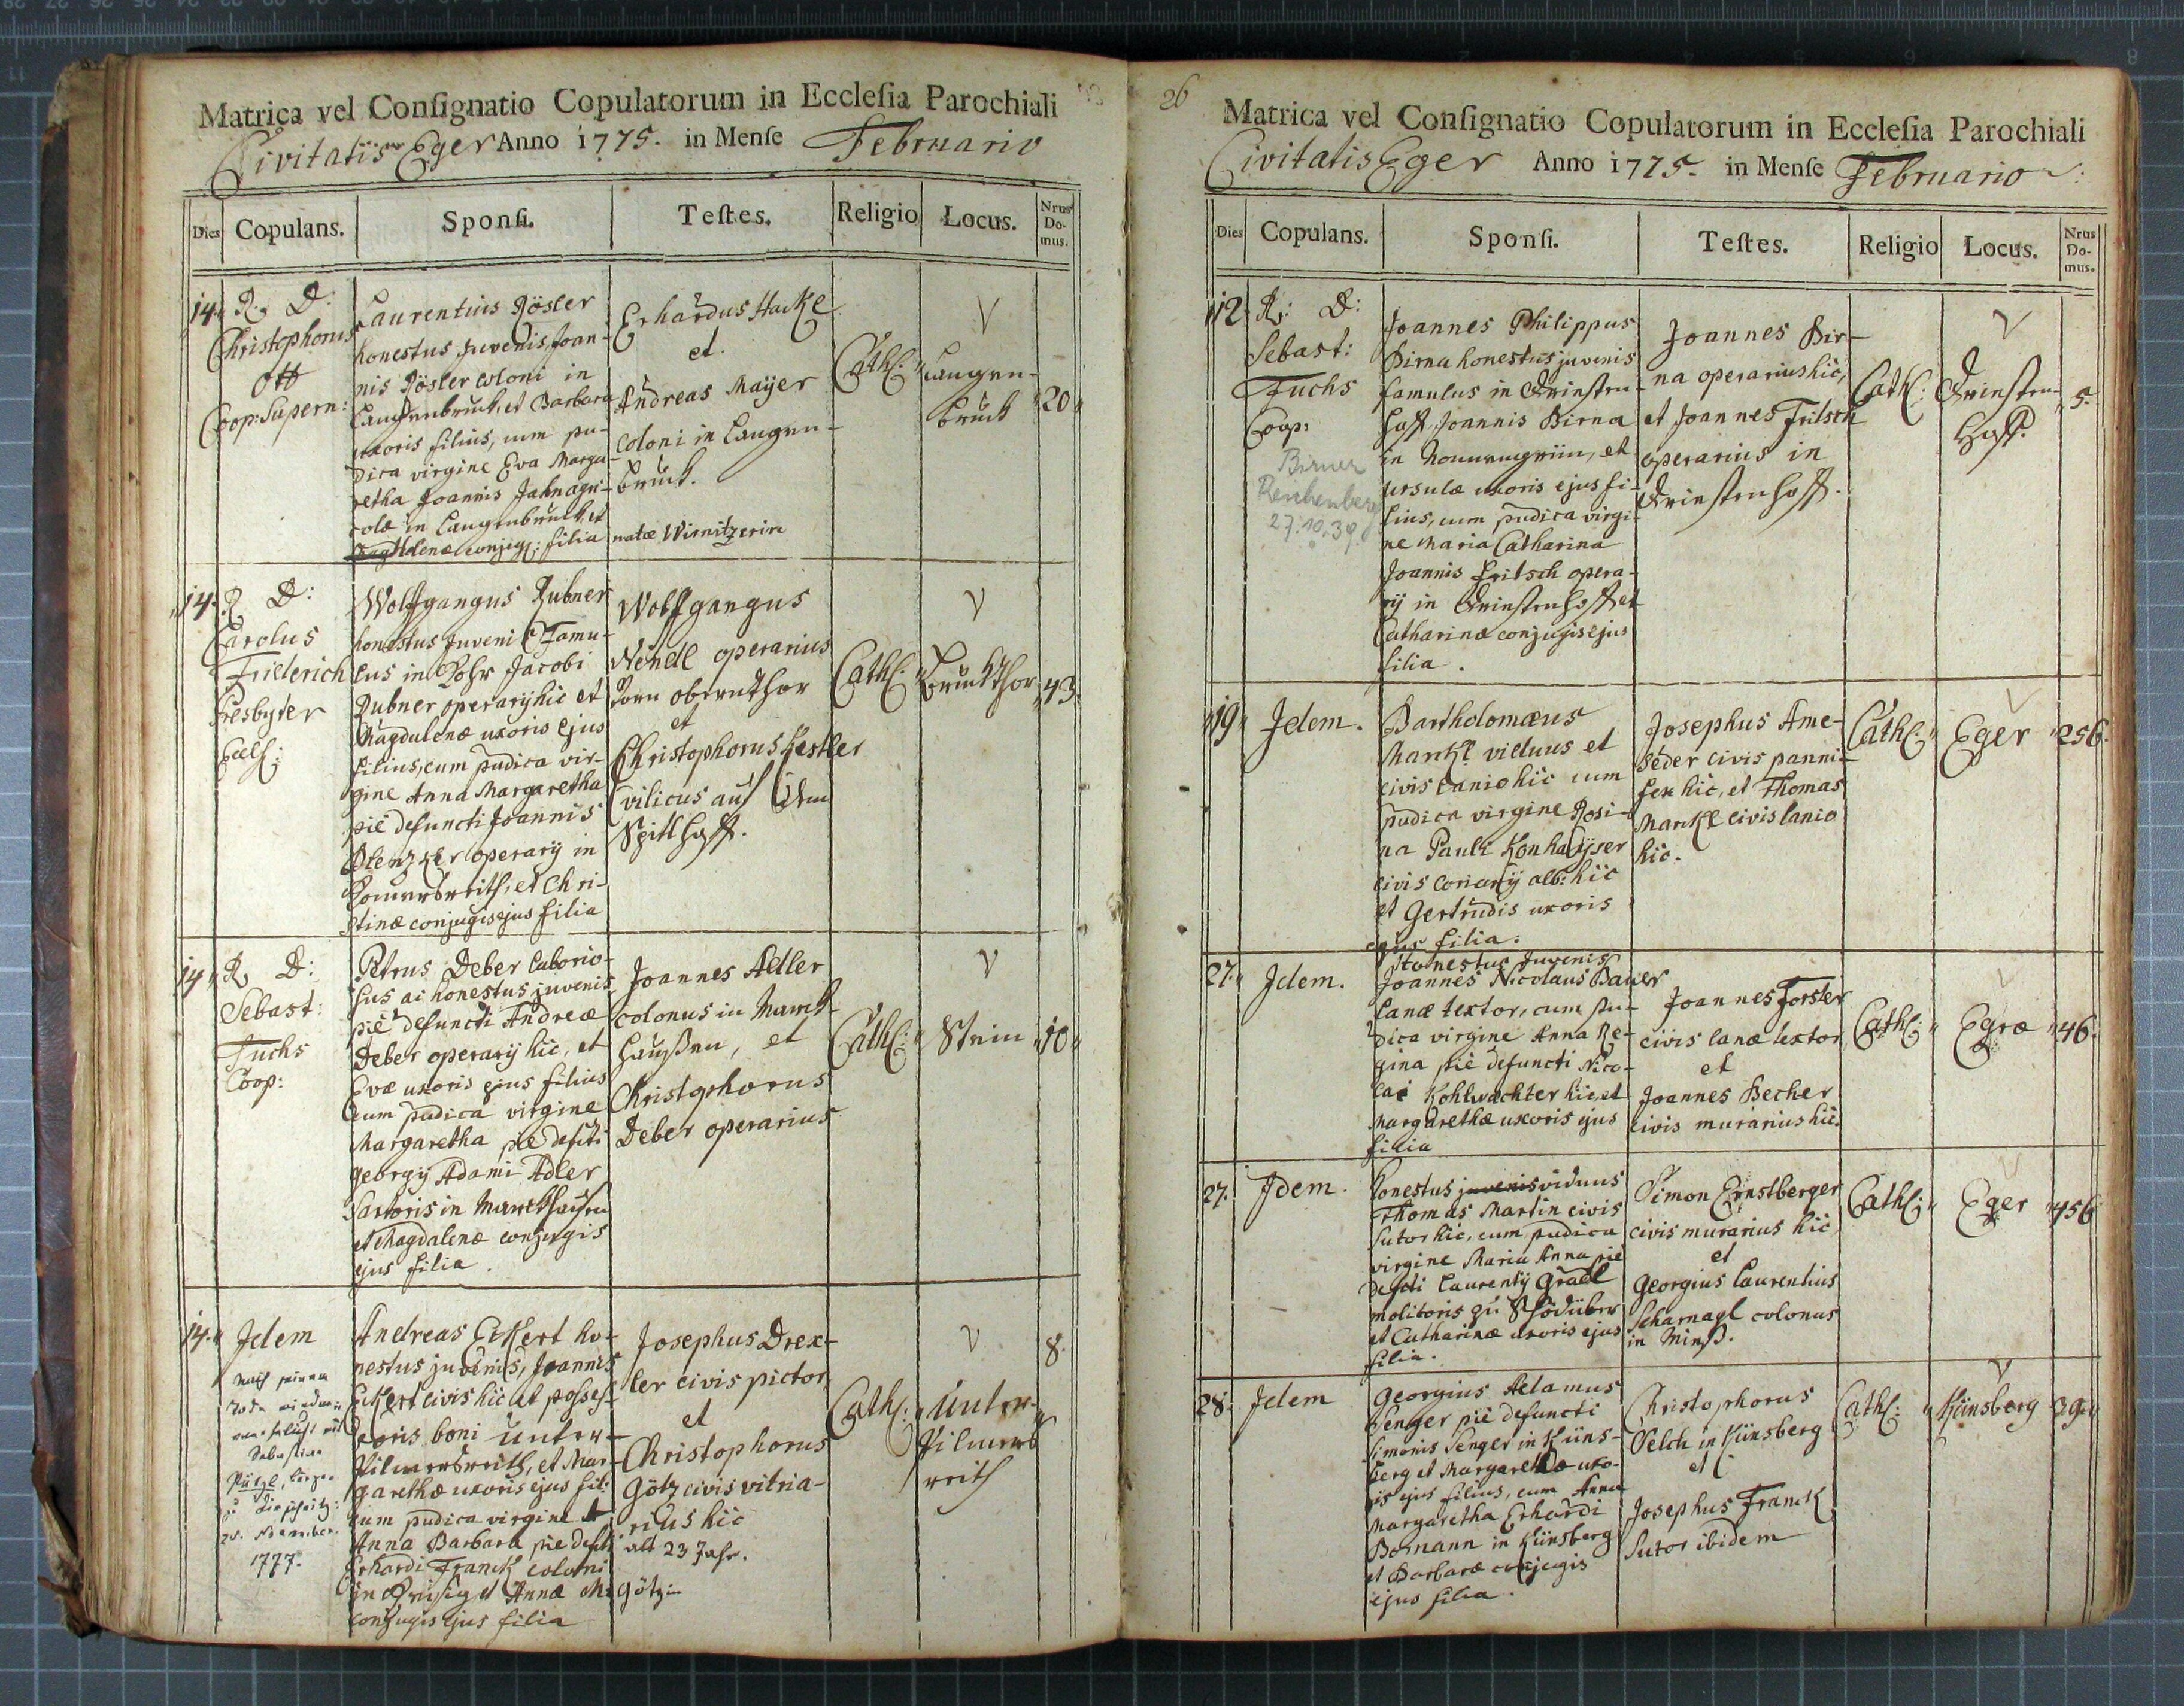 Matrica vel Consignatio Copulatorum in Ecclesia Parochiali
Civitatis Eger Anno 1775. in Mense Februario
Dies Copulans. Sponsi. Testes. Religio Locus. Nrus Do- mus.
14. R. D:
Christophorus
Ott
Coop: Supern:
Laurentius Rösler
honestus Juvenis, Joan-
nis Rösler coloni in
Langenbruck, et Barbara
uxoris filius, cum pu-
dica virgine Eva Marga-
retha Joannis Jahn agri-
colæ in Langenbruck, et
Magdalenæ conjug: filia natæ Wirnitzerin
Erhardus Hackl
et
Andreas Mayer
coloni in Langen-
bruck.
Cath:
Langen-
bruck
20
14. R D:
Carolus
Friderich
Presbyter
Wolfgangus Rubner
honestus Juvenis Famu-
lus in Rohr Jacobi
Rubner operarij hic et
Magdalenæ uxoris ejus
filius, cum pudica vir-
gine Anna Margaretha
pie defuncti Joannis
operarij in
et Chri-
stinæ conjugis ejus filia
Wolfgangus
Wendl operarius
vorn obernthor
et
Christophorus Kestler
vilicus auf dem
Spitlhoff.
Cath:
Bruckthor
43.
14 R D:
Sebast:
Fuchs
Coop:
Petrus Deber laborio-
sus ac honestus juvenis
pie defuncti Andreæ
Deber operarij hic, et
Evæ uxoris ejus filius
cum pudica virgine
Margaretha pie defcti
Georgij Adami Adler
Sartoris in Marckhausen
et Magdalenæ conjugis
ejus filia.
Joannes Adler
colonus in Marck-
haußen, et
Christophorus
Deber operarius
Cath:
Stein
10
14. Idem
nach seinem
Sebastian
November
1777.
Andreas Eckert ho-
nestus juvenis, Joannis
Eckert civis hic et posses-
soris boni Unter-
Pilmersreith, et Mar-
garethæ uxoris ejus fil:
cum pudica virgine
Anna Barbara pie defcti
Erhardi Franck coloni
et Annæ M:
conjugis ejus filia
Josephus Drex-
ler civis pictor
et
Christophorus
Götz civis vitria-
rius hic
alt 23 Jahr.
Götzin
Cath:
Unter-
Pilmers
reith
8.
26
Matrica vel Consignatio Copulatorum in Ecclesia Parochiali
Civitatis Eger Anno 1775. in Mense Februario
Dies Copulans. Sponsi. Testes. Religio Locus. Nrus Do- mus.
12 R: D:
Sebast:
Fuchs
Coop:
Birner
Reichenberg
27.10.39
Joannes Philippus
Birna honestus juvenis
famulus in
hoff, Joannis Birna
in et
Ursulæ uxoris ejus fi-
lius, cum pudica virgi-
ne Maria Catharina
Joannis Fritsch opera-
rij in et
Catharinæ conjugis ejus
filia.
Joannes Bir-
na operarius hic,
et Joannes Fritsch
operarius in
Cath:
5.
19 Idem.
Bartholomæus
Marckl viduus et
civis lanio hic cum
pudica virgine Rosi-
na Pauli Konhaÿser
civis coriarij alb: hic
et Gertrudis uxoris
ejus filia.
Josephus Ame-
seder civis panni-
fex hic, et Thomas
Marckl civis lanio
hic.
Cath:
Eger
256.
27. Idem.
Honestus Juvenis
Joannes Nicolaus Bauer
lanæ textor, cum pu-
dica virgine Anna Re-
gina pie defuncti Nico-
lai Kohlwachter hic, et
Margarethæ uxoris ejus
filia
Joannes Forster
civis lanæ textor
et
Joannes Becher
civis murarius hic.
Cath:
Egræ
46.
27. Idem.
Honestus juvenis viduus
Thomas Martin civis
Sutor hic, cum pudica
virgine Maria Anna pie
defcti Laurentij Gradl
molitoris zu
et Catharinæ uxoris ejus
filia.
Simon Ernstberger
civis murarius hic
et
Georgius Laurentius
Scharnagl colonus
in
Cath:
Eger
456
28. Idem
Georgius Adamus
Senger pie defuncti
Simonis Senger in Küns-
berg et Margarethæ uxo-
ris ejus filius, cum Anna
Margaretha Erhardi
Bomann in Künsberg
et Barbaræ conjugis
ejus filia.
Christophorus
Selch in Künsberg
et
Josephus Franck
Sutor ibidem
Cath:
Künsberg
39.